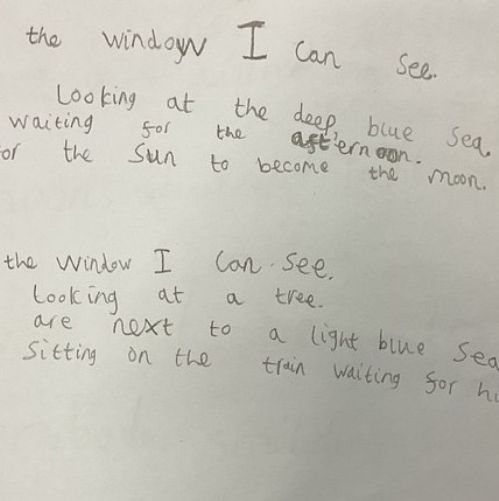 the window I can see.
Looking at the deep blue sea.
waiting for the afternoon.
or the Sun to become the moon.
the window I can see.
Looking at a tree.
are next to a light blue Sea
Sitting on the train waiting for hi